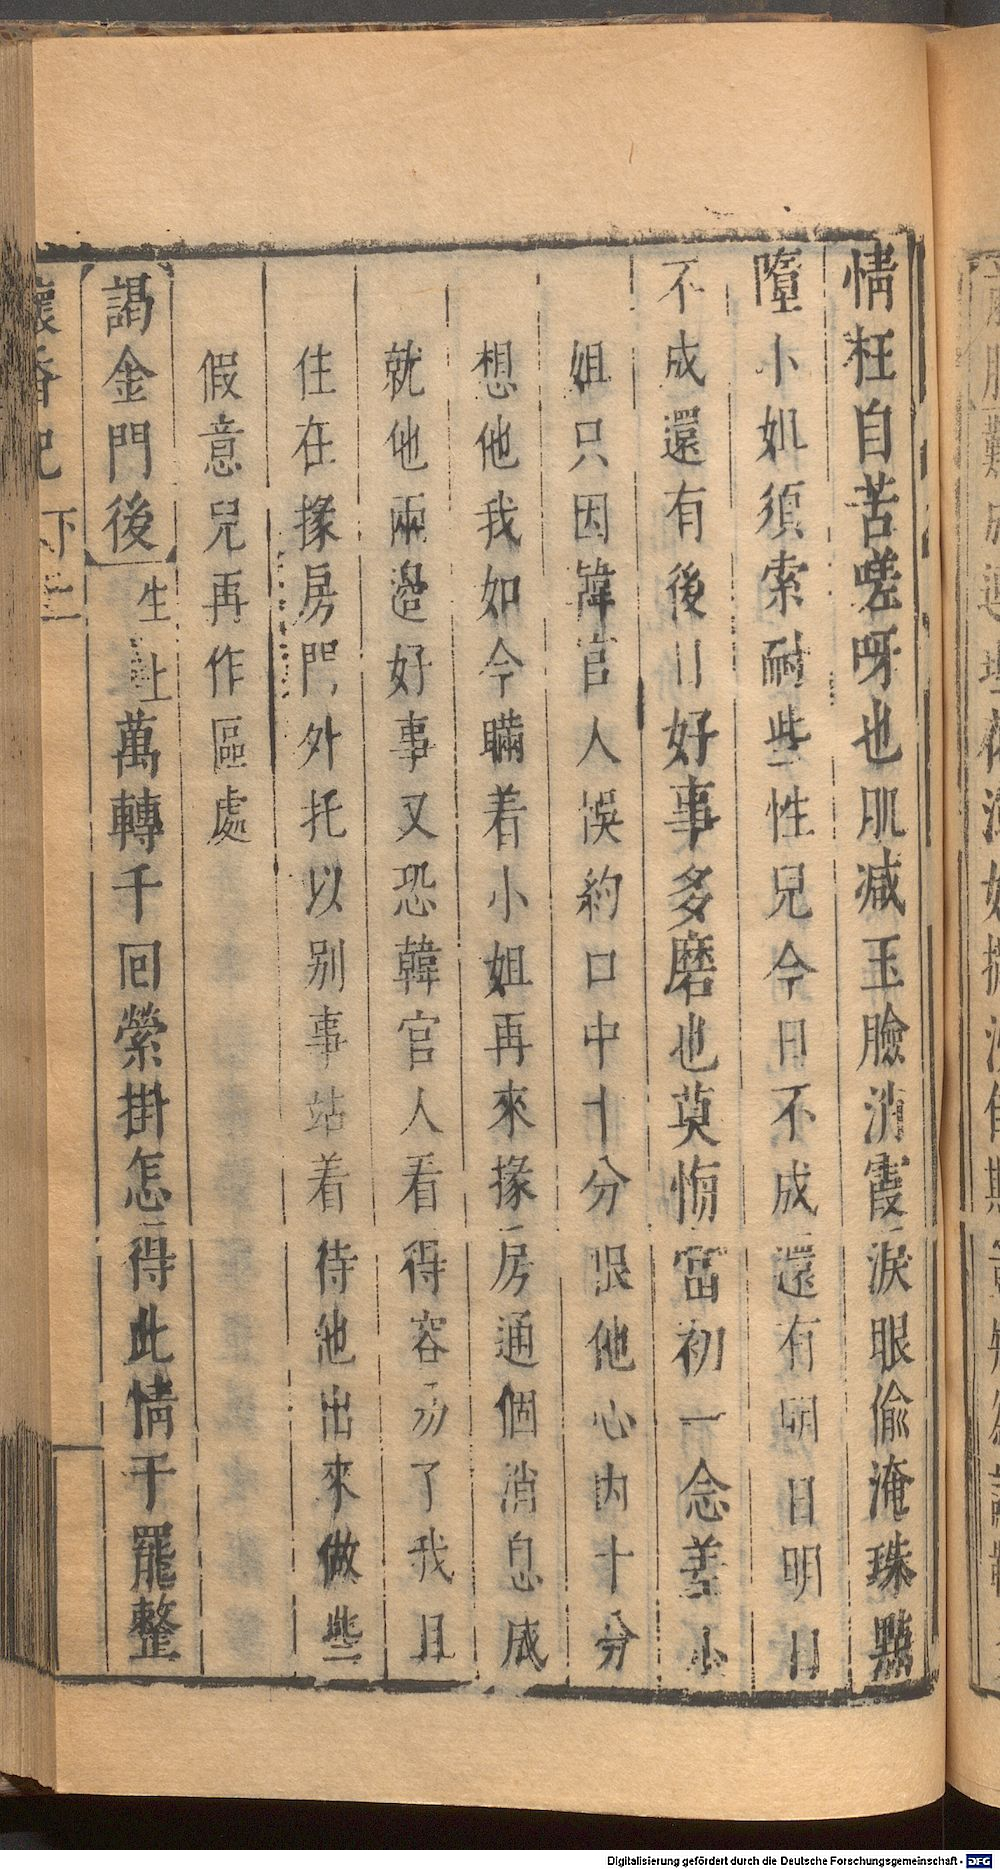 情枉自苦嗟呀也肌减玉臉消霞淚眼偷淹珠點
墮小姐須索耐些性兒今日不成還有明日明日
不成還有後日好事多磨也莫惱當初一念善小
姐只因韓官人悞約口中十分恨他心内十分
想他我如今瞞着小姐再來掾房通個消息成
就他兩邉好事又恐韓官人看得容易了我且
住在掾房門外托以别事站着待他出來做些
假意兒再作區處
謁金門後 生上 萬轉千回縈掛怎得此情干罷整
懷香記 下
Digitalisierung gefördert durch die Deutsche Forschungsgemeinschaft - DFG